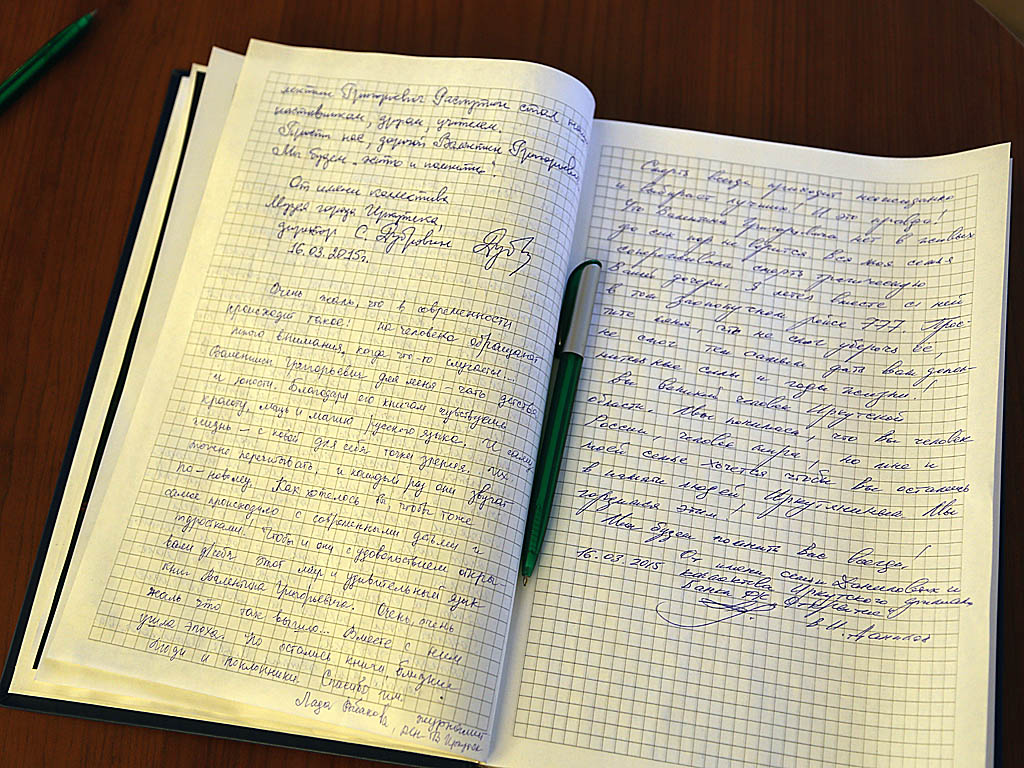 лентин Григорьевич Распутин стал
наставником, другом, учителем.
Прости нас, дорогой Валентин Григорьевич
Мы будем жить и помнить!
От имени коллектива
Лицея города Иркутска
директор С Дубровин
16.03.2015г.
Очень жаль, что в современности
происходит такое: на человека обращают
много внимания, когда что-то случается...
Валентин Григорьевич для меня - часть детства
и юности. Благодаря его книгам чувствуешь
красоту, мощь и магию русского языка. И саму
жизнь - с новой для себя точки зрения. Их
можно перечитывать, и каждый раз они звучат
по-новому. Как хотелось бы, чтобы тоже
самое происходило с современными детьми и
подростками. Чтобы и они с удовольствием
этот мир и удивительный язык
книг Валентина Григорьевича. Очень, очень
жаль что так вышло... Вместе с ним
ушла эпоха. Но остались книги, близкие
люди и поклонники. Спасибо им.
Лада журналист
Смерть всегда приходит неожиданно
и выбирает лучших. И это правда!
Что Валентина Григорьевича нет в живых
до сих пор не верится вся моя семья
смерть трагическую
Вашей дочери. Я летел вместе с ней
в том злополучном рейсе 777. Прос-
тите меня, что не смог уберечь её,
не смог тем самым дать вам допол-
нительные силы и годы жизни!
Вы великий человек Иркутской
области. Мы понимаем, что вы человек
России, человек мира! Но мне и
моей семье хочется чтобы Вы остались
в памяти людей, Иркутянином. Мы
гордимся этим!
Мы будем помнить Вас всегда!
16.03.2015 От имени семьи и
коллектива Иркутского филиала
Банка